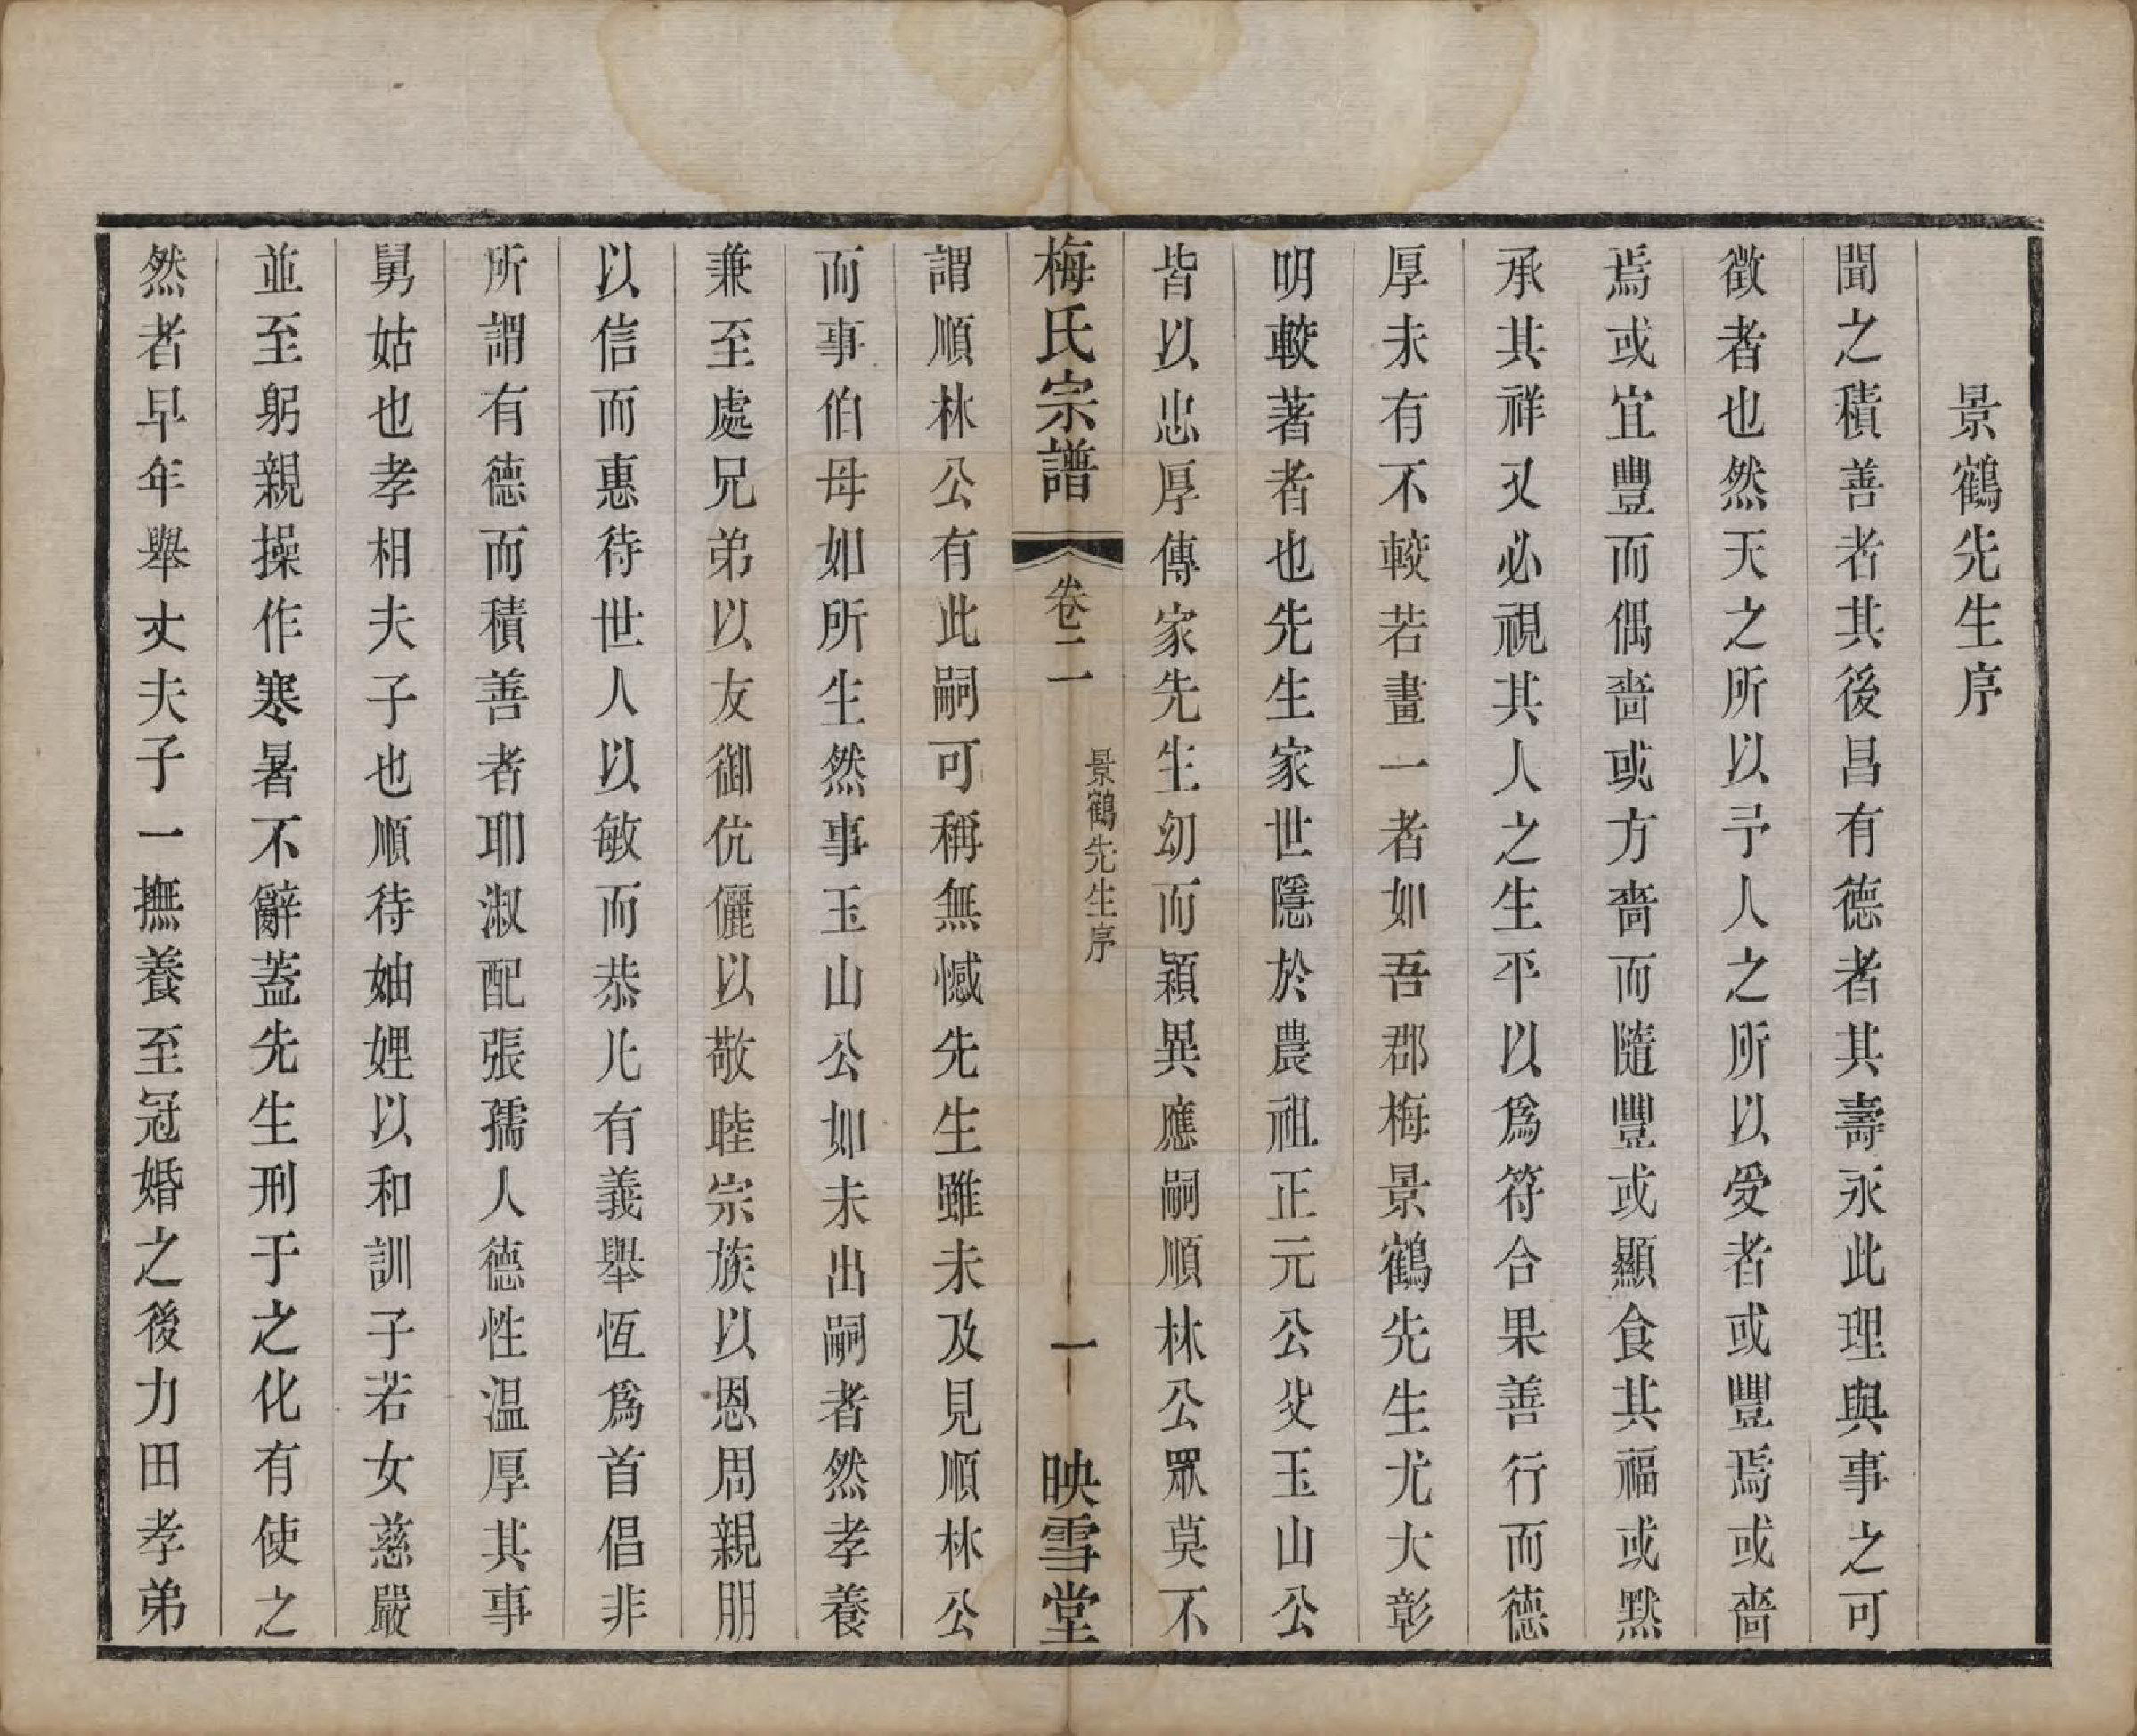 景鶴先生序
聞之積善者其後昌有德者其壽永此理與事之可
徵者也然天之所以予人之所以受者或豐焉或嗇
焉或宜豐而偶嗇或方嗇而隨豐或顯食其福或黙
承其祥又必視其人之生平以爲符合果善行而德
厚未有不較若畫一者如吾郡梅景鶴先生尤大彰
明較著者也先生家世隱於農祖正元公父玉山公
皆以忠厚傳家先生幼而穎異應嗣順林公眾莫不
梅氏宗譜
卷二一
景鶴先生序
一
映雪堂
謂順林公有此嗣可稱無憾先生雖未及見順林公
而事伯母如所生然事玉山公如未出嗣者然孝養
兼至處兄弟以友御伉儷以敬睦宗族以恩周親朋
以信而惠待世人以敏而恭凡有義舉恆爲首倡非
所謂有德而積善者耶淑配張孺人德性温厚其事
舅姑也孝相夫子也順待妯娌以和訓子若女慈嚴
並至躬親操作寒暑不辭蓋先生刑于之化有使之
然者早年舉丈夫子一撫養至冠婚之後力田孝弟